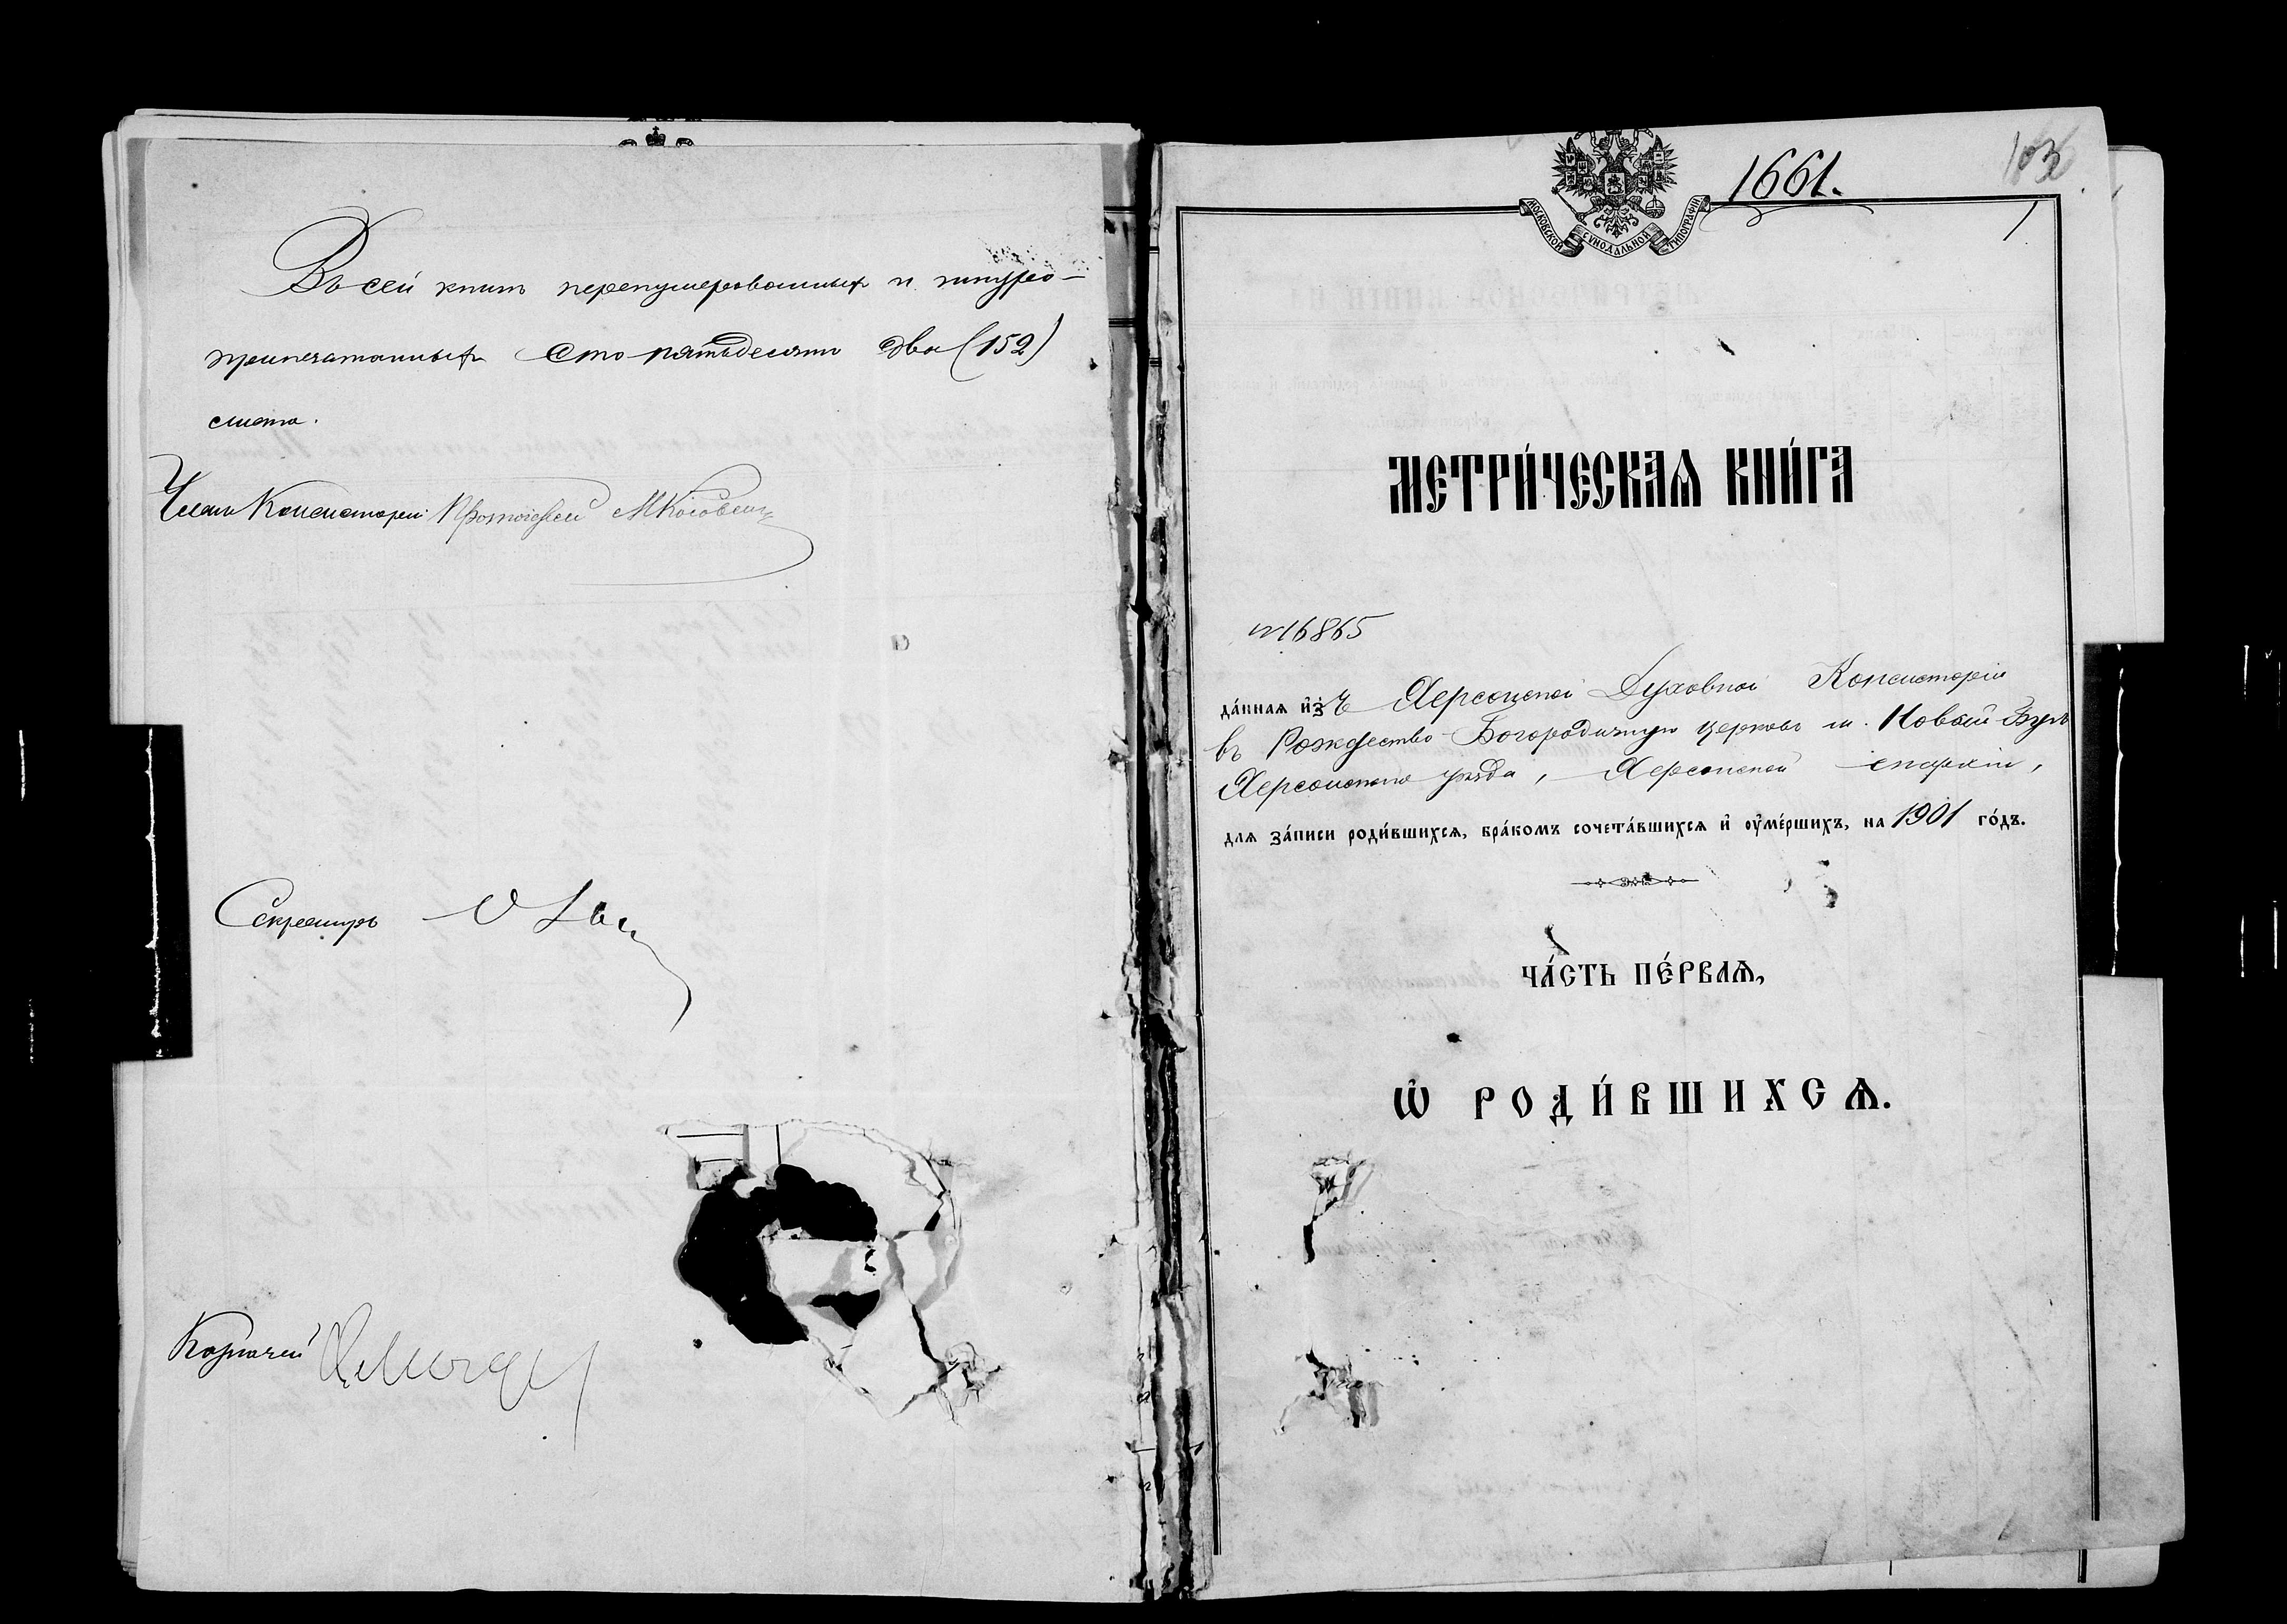 Въ сей книгѣ перенумерованныхъ и шнуро-
припечатанныхъ Сто пятьдесятъ два (152)
листа.
Членъ Консисторіи Протоіерей
Секретарь
Казначей
1661.
103
1
МОСКОВСКОЙ СѴНОДАЛЬНОЙ ТИПОГРАФІИ
МЕТРИ́ЧЕСКАѦ КНИ́ГА
№16865
да́нная и҆зъ Херсонской Духовной Консисторіи
въ Рождество-Богородичную церковь м. Новый Бугъ
Херсонскаго уѣзда, Херсонской епархіи,
для за́писи роди́вшихся, бра́комъ сочета́вшихся и҆ оу҆ме́ршихъ, на 1901 го́дъ.
ЧА́СТЬ ПЕ́РВАѦ,
Ѽ РОДИ́ВШИХСѦ.